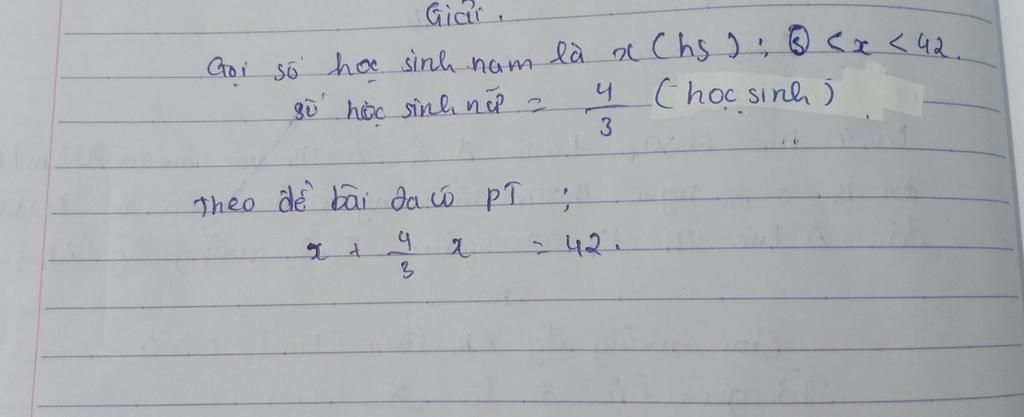 Giải.
Gọi số học sinh nam là x (hs); 0 < x < 42.
số học sinh nữ = 4/3 (học sinh)
Theo đề bài ta có PT;
x + 4/3 x = 42.